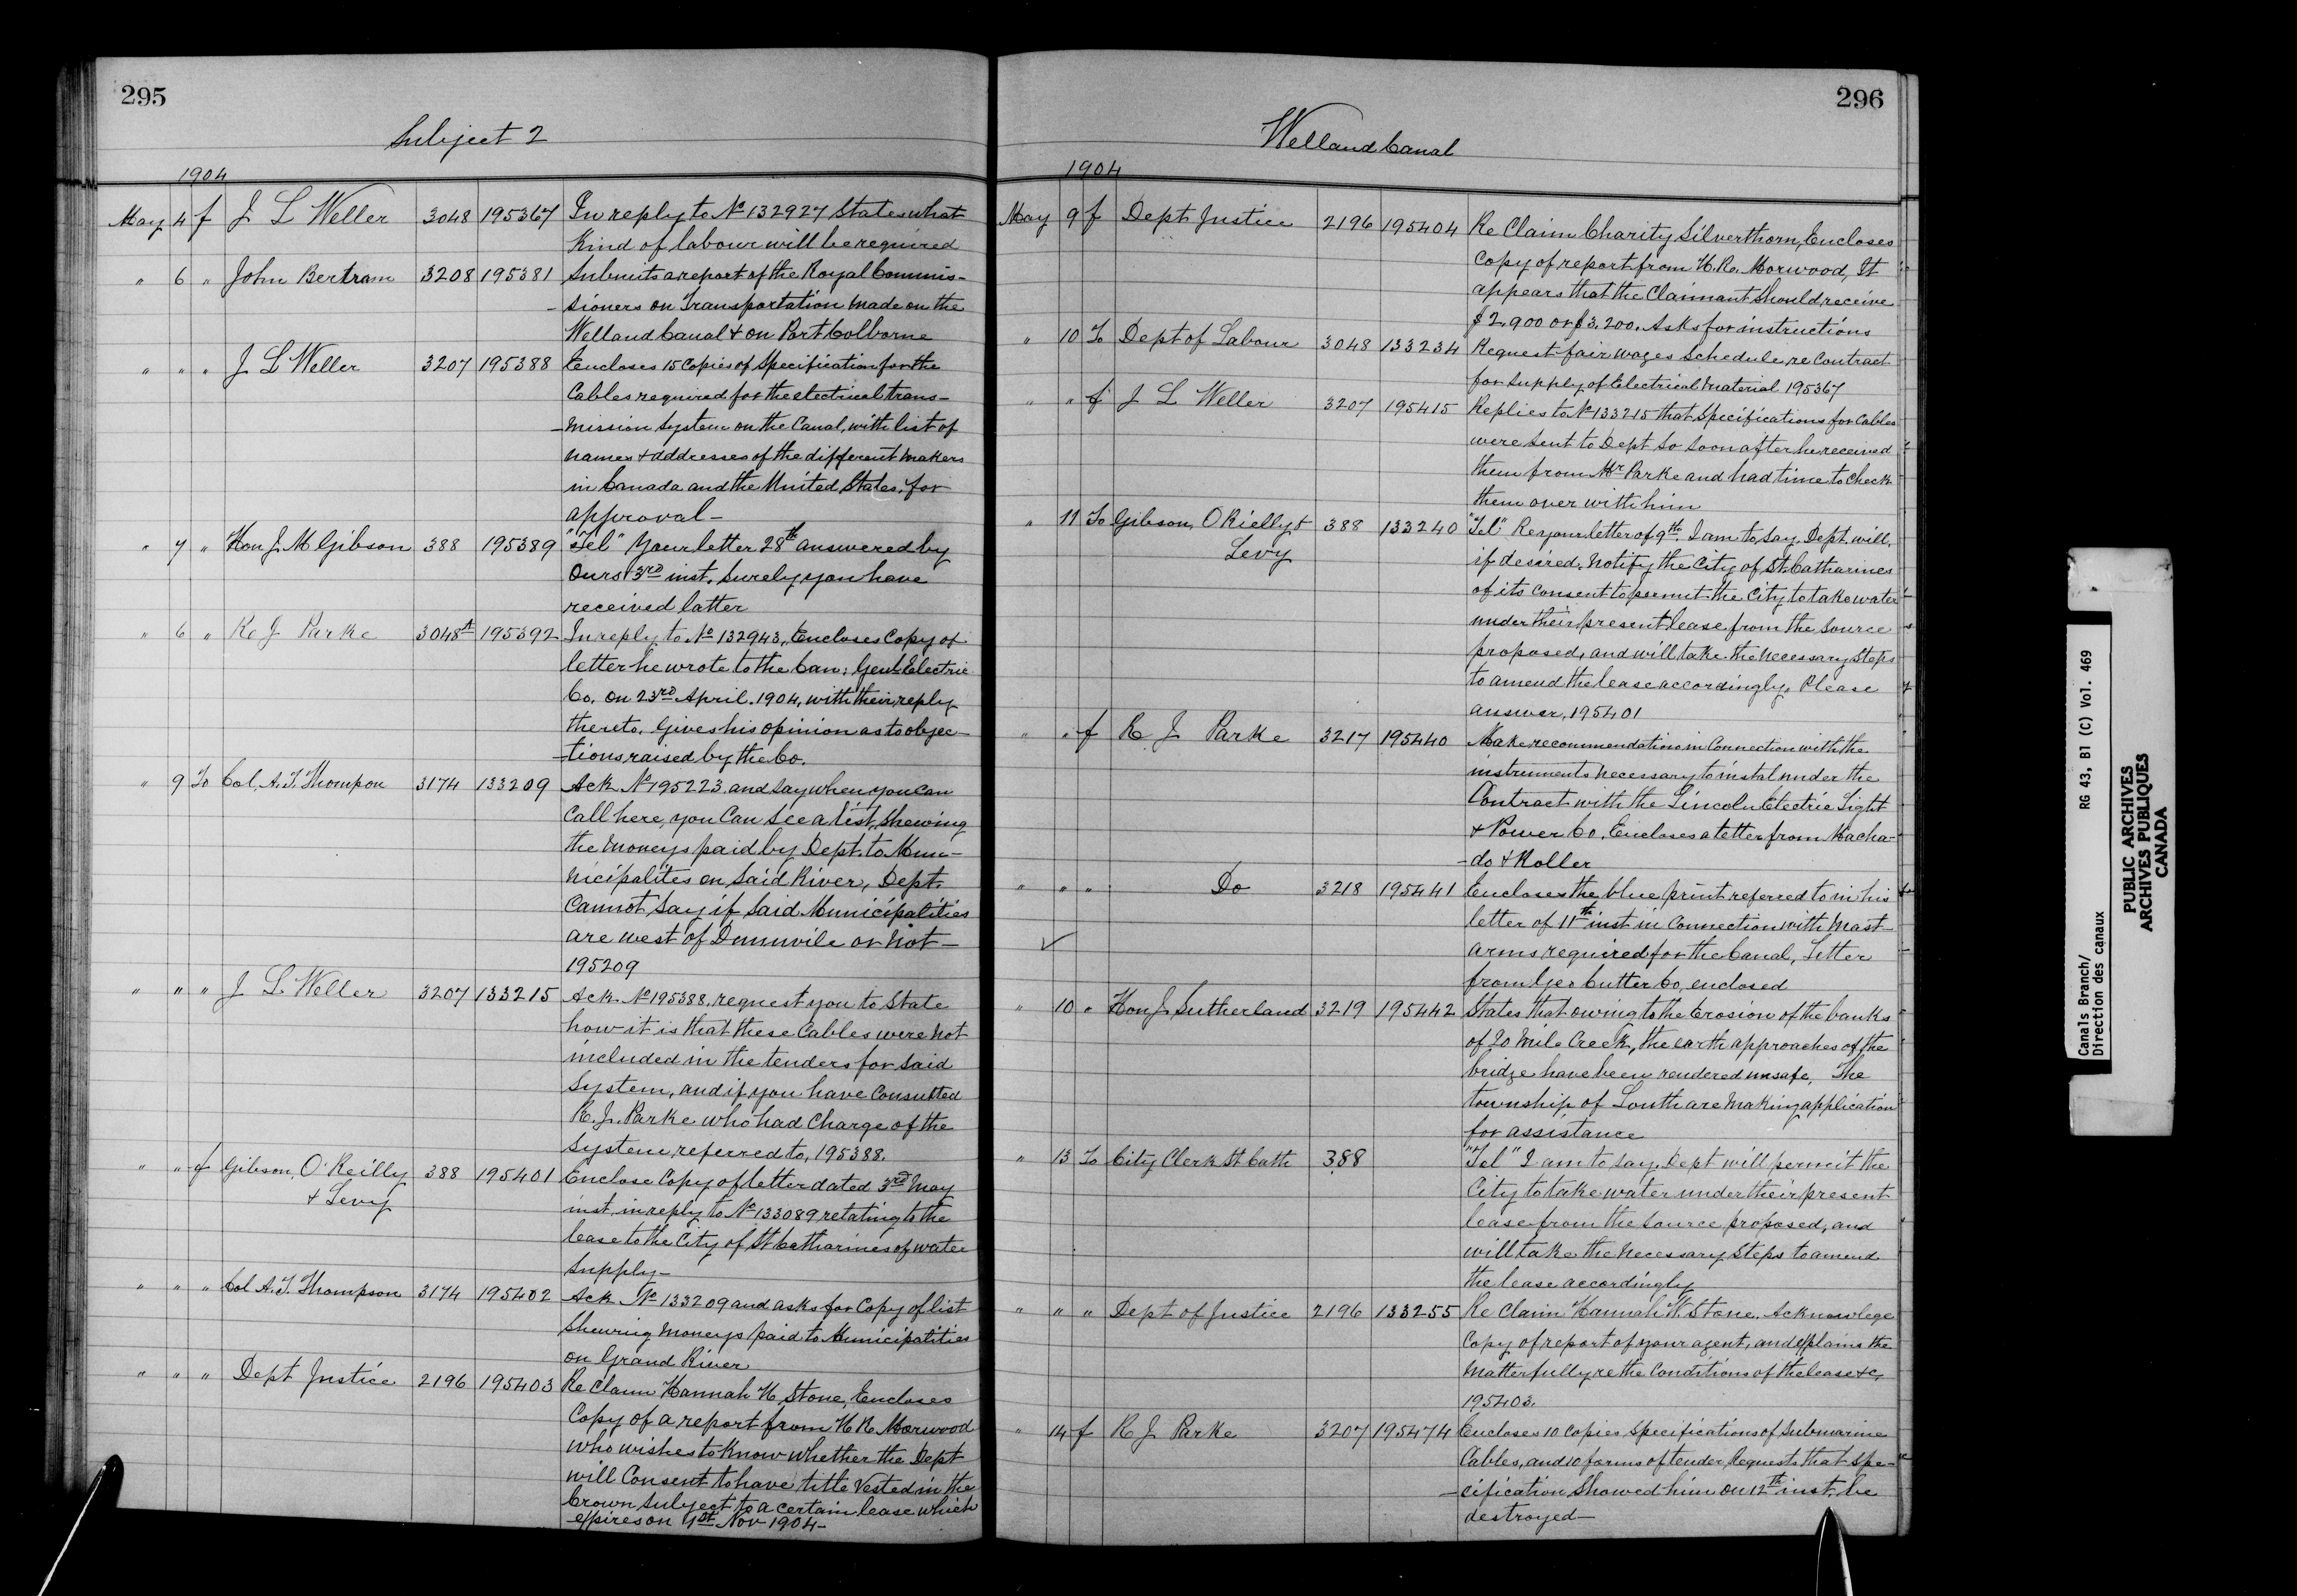 295
Subject 2
1904
May 4 f J L Weller 3048 195367 In reply to No 132927 States what
Kind of labour will be required
" 6 " John Bertram 3208 195381 Submits a report of the Royal Commis-
-sioners on Transportation made on the
Welland Canal & on Port Colborne
" " " J L Weller 3207 195388 Encloses 15 Copies of Specification for the
Cables required for the electrical trans-
-mission System on the Canal, with list of
names & adddresses of the different makers
in Canada and the United States, for
approval-
" 7 " Hon J. M Gibson 388 195389 "Tel" Your letter 28th answered by
Ours 3rd inst. Surely you have
received latter
" 6 " R J Parke 3048A 195392 In reply to No 132943, Encloses Copy of
letter he wrote to the Can: Genl Electric
Co. on 23rd April. 1904, with their reply
thereto. Gives his opinion as to objec-
-tions raised by the Co.
" 9 To Col. A. T. Thompon 3174 133209 Ack No 195223 and say when you can
Call here, you Can See a list, Shewing
the moneys paid by Dept. to Mun-
nicipalites on Said River, Dept.
Cannot Say if Said Municipalities
are west of Dunnvile or not-
195209
" " " J L Weller 3207 133215 Ack. No 195388, request you to State
how it is that these Cables were not
included in the tenders for Said
System, and if you have Consulted
R. J. Parke who had Charge of the
System referred to, 195388.
" " f Gibson, O'Reilly 388 195401 Enclose Copy of letter dated 3rd May
& Levy
inst. in reply to No 133089 relating to the
lease to the City of St Catharines of water
Supply-
" " " Col A. T. Thompson 3174 195402 Ack No 133209 and asks for Copy of list
Shewing moneys paid to Municipalities
on Grand River
" " " Dept Justice 2196 195403 Re Claim Hannah H Stone, Encloses
Copy of a report from H R Morwood
who wishes to Know whether the Dept
will Consent to have title Vested in the
Crown Subject to a certain lease which
expires on 1st Nov 1904-
296
Welland Canal
1904
May 9 f Dept Justice 2196 195404 Re Claim Charity Silverthorn, Encloses
Copy of report from H. R. Morwood, It
appears that the Claimant Should receive
$2.900 or $3.200. Asks for instructions
" 10 To Dept of Labour 3048 133234 Request fair wages Schedule re Contract
for Supply of Electrical Material 195367
" " f J L Weller 3207 195415 Replies to No 133215 that Specifications for Cables
were Sent to Dept So Soon after he received
them from Mr Parke and had time to Check
them over with him
" 11 To Gibson, O Rielly & 388 133240 "Tel" Re your letter of 9th. I am to Say. Dept. will,
Levy
if desired. Notify the City of St. Catharines
of its Consent to permit the City to take water
under their present lease from the Source
proposed, and will take the necessary Steps
to amend the lease accordingly. Please
answer, 195401
" " f R J Parke 3217 195440 Make recommendations in Connection with the
instruments necessary to instal under the
Contract with the Lincoln Electric Light
& Power Co. Encloses a letter from Macha-
-do & Roller
" " " Do 3218 195441 Encloses the blue print referred to in his
letter of 11th inst in Connection with Mast-
arms required for the Canal, Letter
from Geo Cutter Co, enclosed
" 10 " Hon J. Sutherland 3219 195442 States that owing to the Erosion of the banks
of 20 Mile Creek, the earth approaches of the
bridge have been rendered unsafe, The
township of Louth are making application
for assistance
" 13 To City Clerk St Cath 388 "Tel" I am to Say. Dept will permit the
City to take water under their present
lease from the Source proposed, and
will take the necessary Steps to amend
the lease accordingly
" " " Dept of Justice 2196 133255 Re Claim Hannah H. Stone. Acknowlege
Copy of report of your agent, and explains the
Matter fully re the Conditions of the lease &c,
195403.
" 14 f R J Parke 3207 195474 Encloses 10 Copies Specifications of Submarine
Cables, and 10 forms of tender, Requests that Spe-
-cification Showed him on 12th inst. be
destroyed-
Canals Branch/
Direction des canaux
RG 43, B1 (C) Vol. 469
PUBLIC ARCHIVES
ARCHIVES PUBLIQUES
CANADA